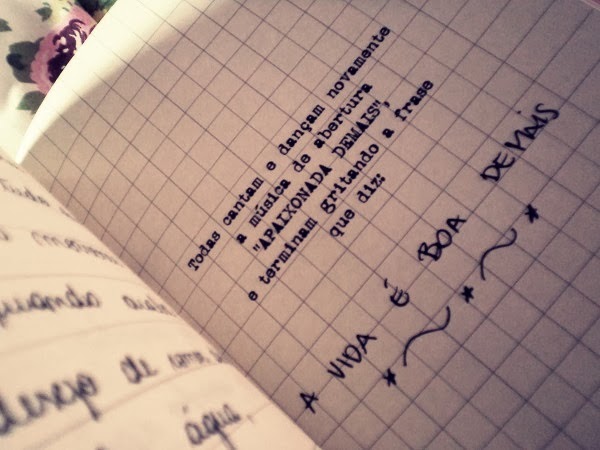 quando
desejo de
água.
Todas cantam e dançam novamente
a música de abertura
"APAIXONADA DEMAIS",
e terminam gritando a frase
que diz:
A VIDA É BOA DEMAIS